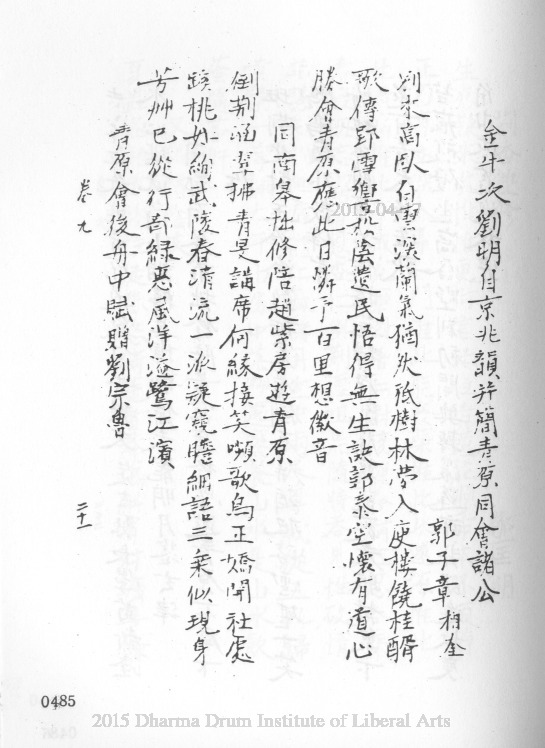 金牛次劉明自京兆韻并簡青原同會諸公
郭子章 相奎
別來高臥白雲深蘭氣猶狀祗樹林夢入庾樓饒桂醑
歌傳郢雪響松陰遺民悟得無生訣郭泰空懷有道心
勝會青原應此日憐予百里想徽音
同南皋拙修陪趙紫房遊青原
倒荊溪翠拂青旻講席何緣接笑嚬歌鳥正嬌開社處
蹊桃妙絢武陵春清流一派疑窺膽細語三乘似現身
芳艸已從行部綠惠風洋溢鷺江濱
青原會後舟中賦贈劉宗魯
卷九
二十一
0485
2015 Dharma Drum Institute of Liberal Arts